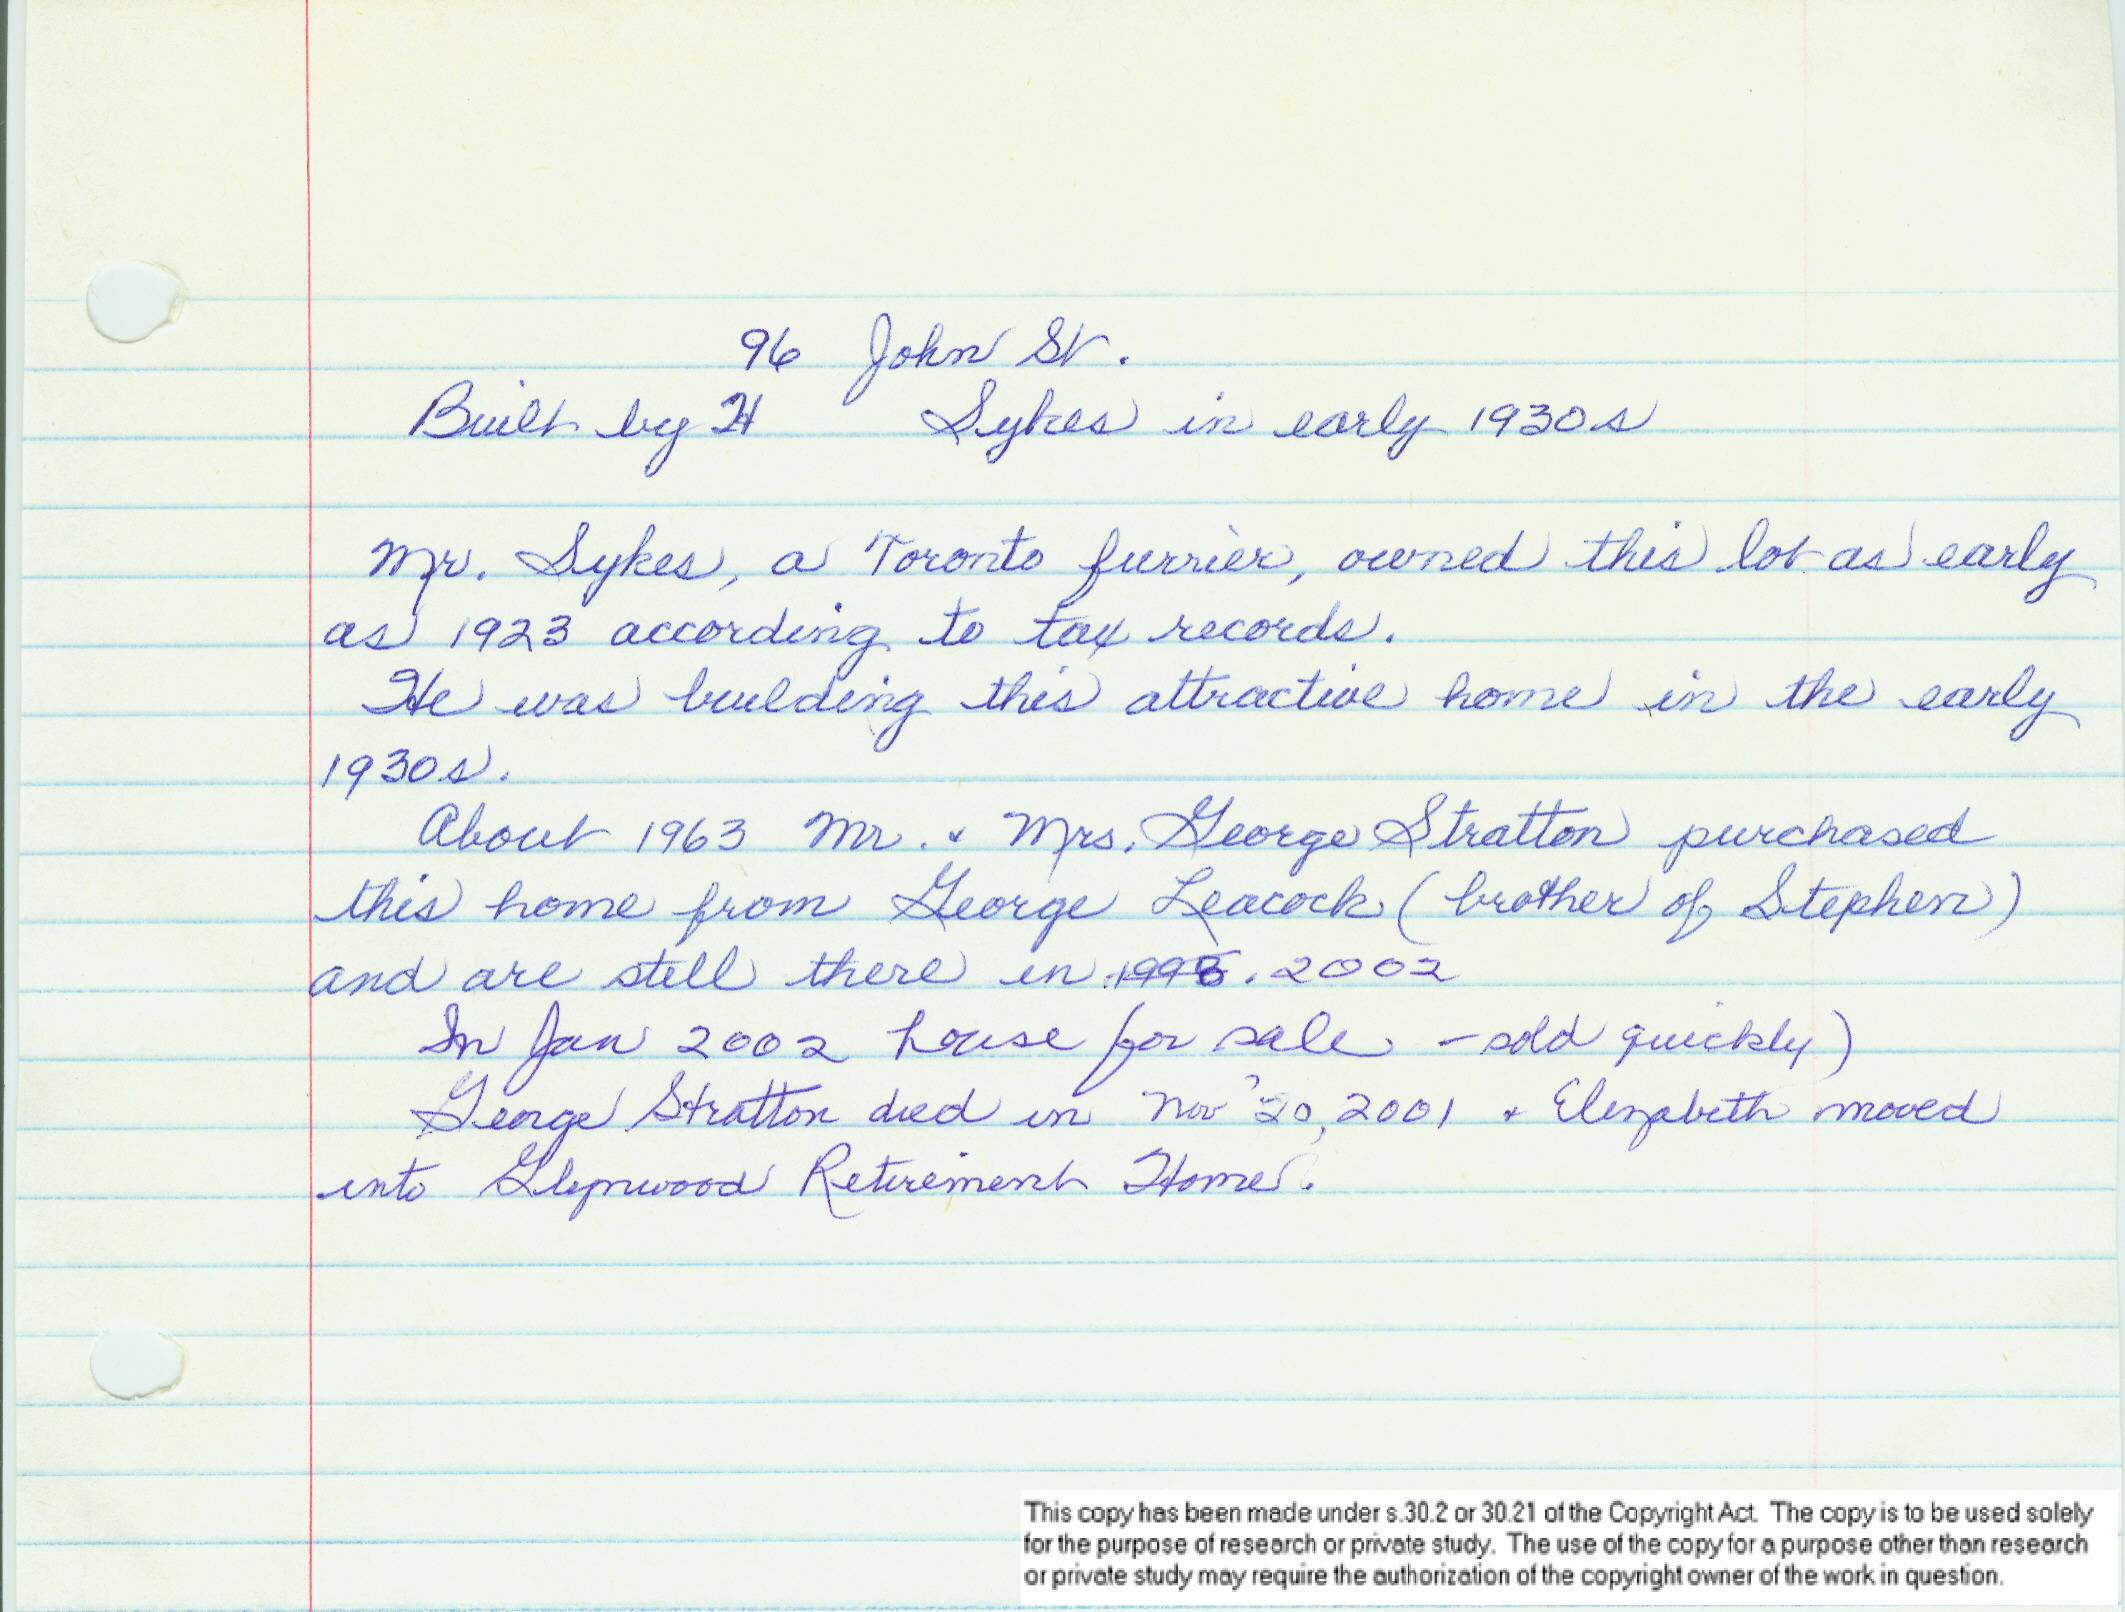 96 John St.
Built by H Sykes in early 1930s
Mr. Sykes, a Toronto furrier, owned this lot as early
as 1923 according to tax records.
He was building this attractive home in the early
1930s.
About 1963 Mr. & Mrs. George Stratton purchased
this home from George Leacock (brother of Stephen)
and are still there in 1998. 2002
In Jan 2002 house for sale - sold quickly)
George Stratton died in Nov 20, 2001 & Elizabeth moved
into Glynwood Retirement Home.
This copy has been made under s.30.2 or 30.21 of the Copyright Act. The copy is to be used solely
for the purpose of research or private study. The use of the copy for a purpose other than research
or private study may require the authorization of the copyright owner of the work in question.